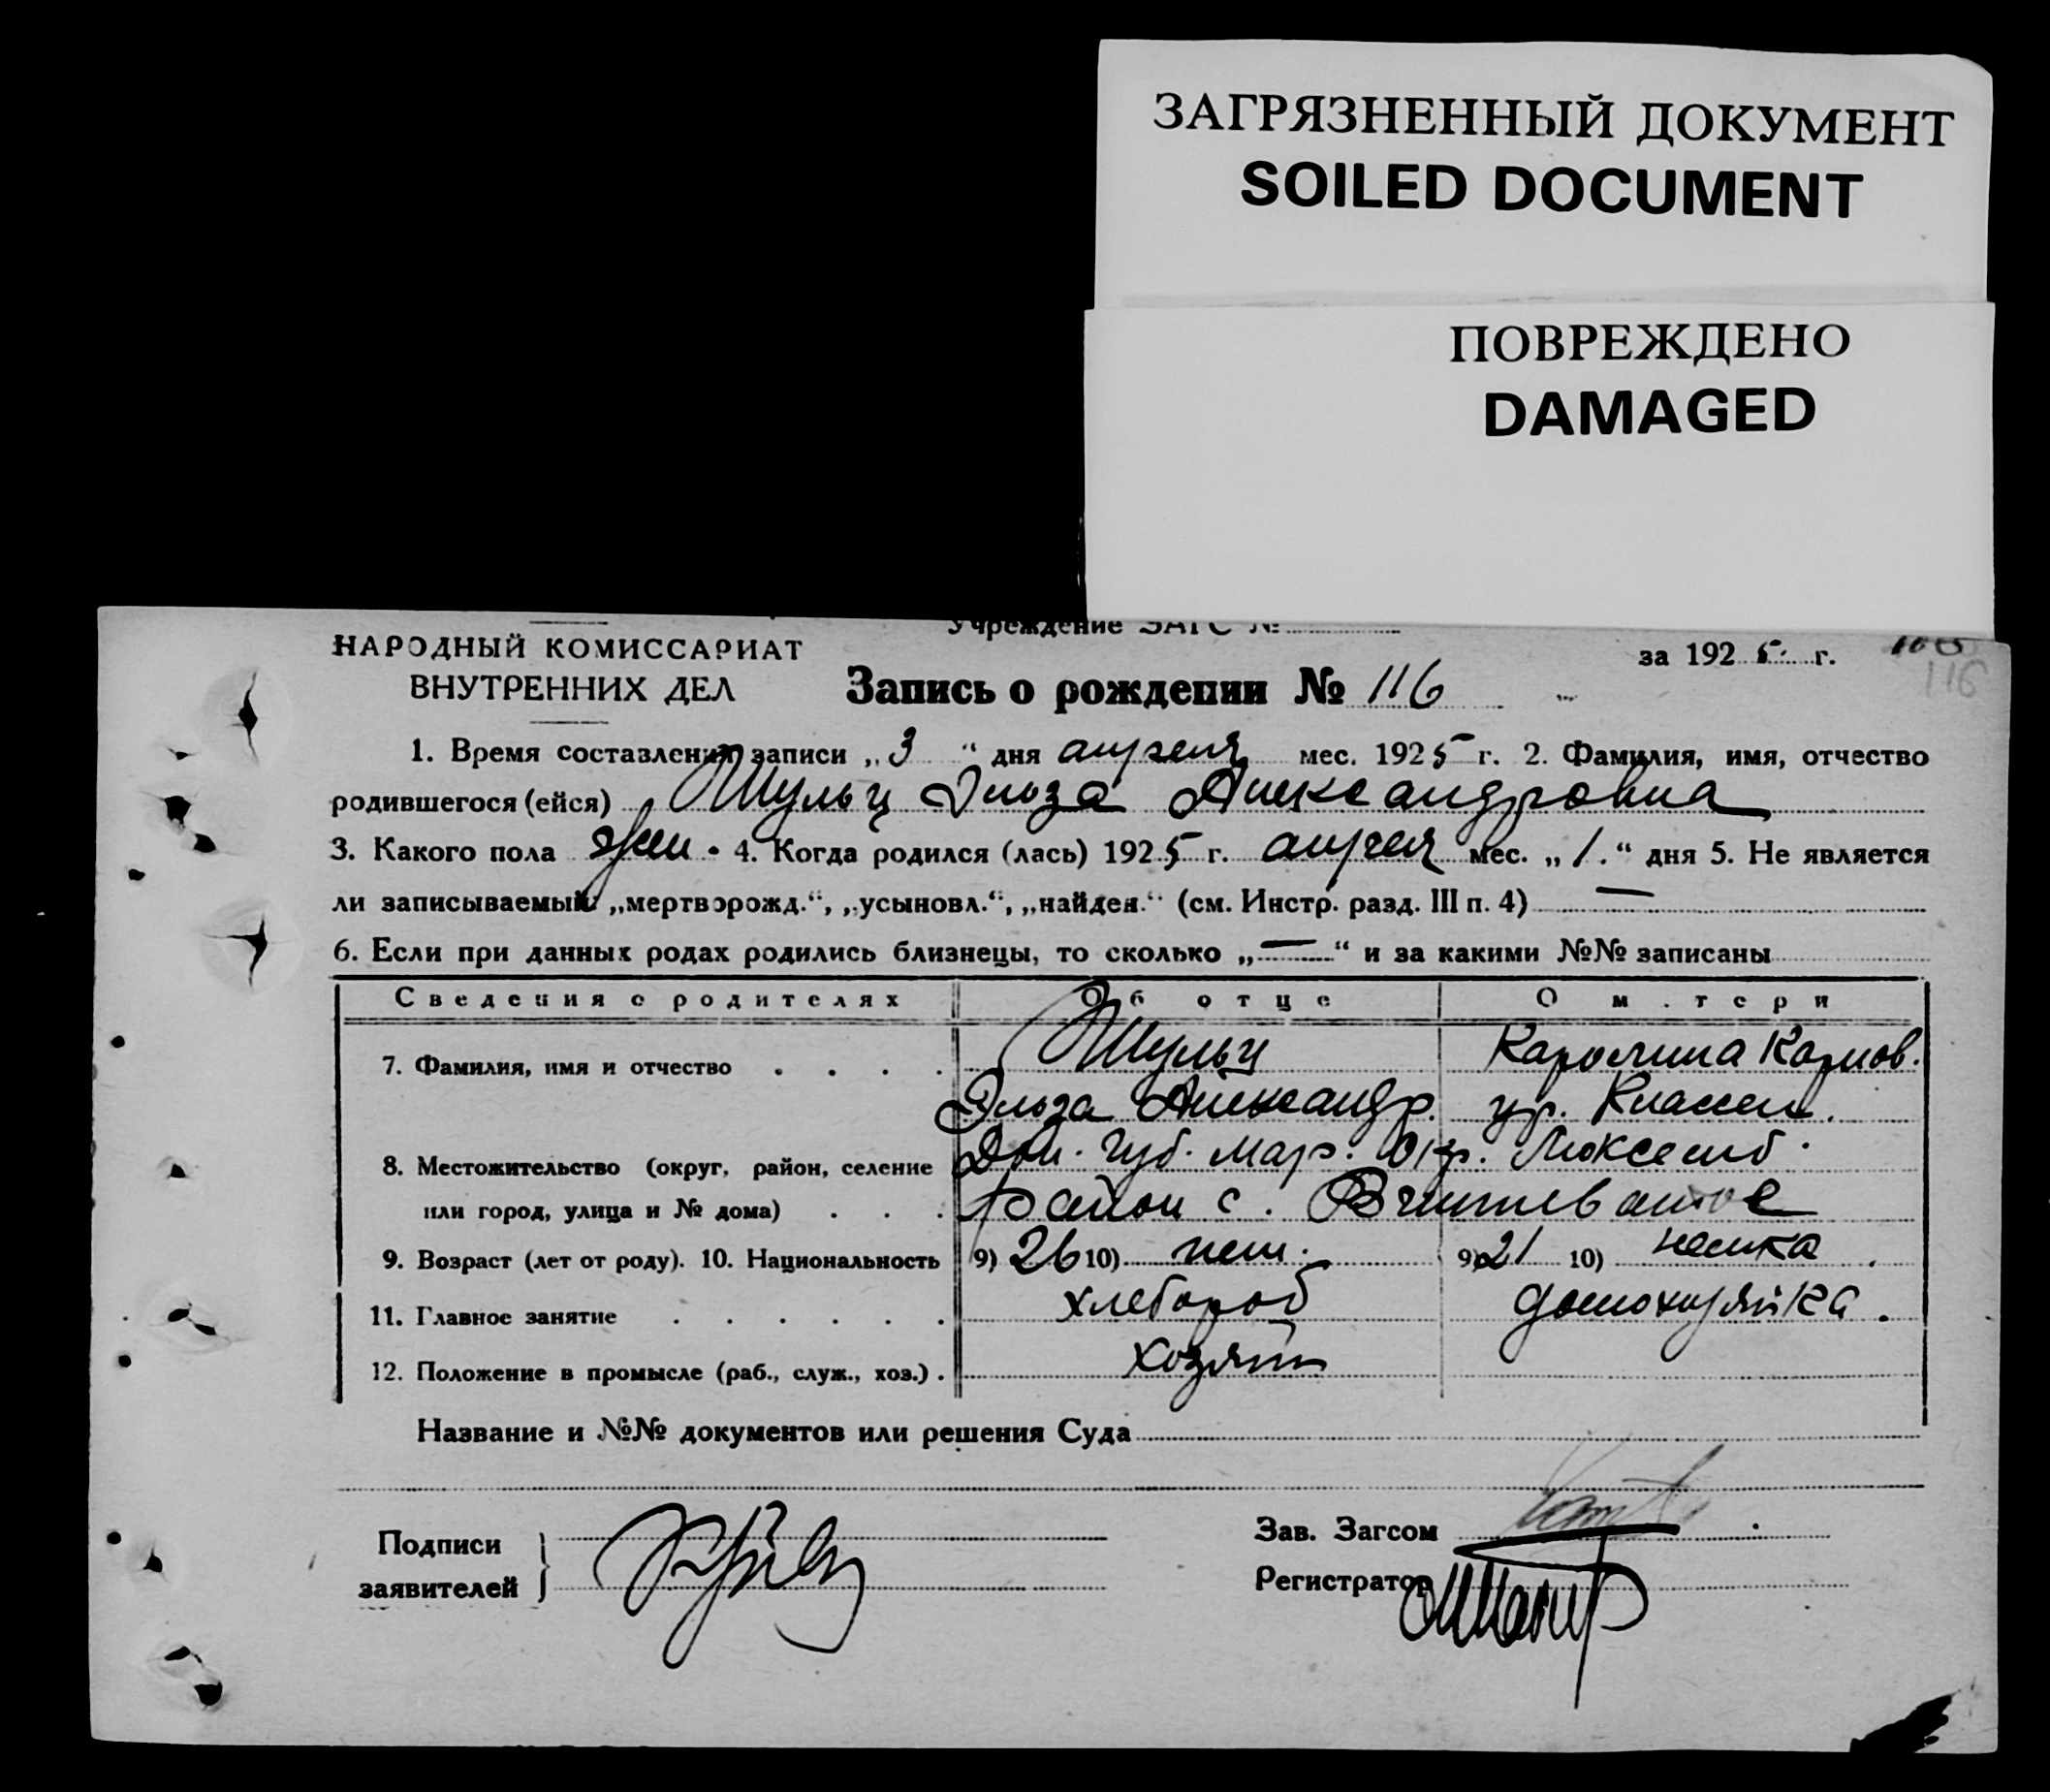 ЗАГРЯЗНЕННЫЙ ДОКУМЕНТ
SOILED DOCUMENT
ПОВРЕЖДЕНО
DAMAGED
Учреждение ЗАГС №
НАРОДНЫЙ КОМИССАРИАТ
ВНУТРЕННИХ ДЕЛ
за 1925 г.
116
Запись о рождении № 116
1. Время составления записи „3“ дня апреля мес. 1925 г. 2. Фамилия, имя, отчество
родившегося (ейся) Шульц Эльза Александровна
3. Какого пола жен. 4. Когда родился (лась) 1925 г. апреля мес. „1.“ дня 5. Не является
ли записываемый „мертворожд.“, „усыновл.“, „найден.“ (см. Инстр. разд. III п. 4) —
6. Если при данных родах родились близнецы, то сколько „—“ и за какими №№ записаны
Сведения о родителях Об отце О матери
7. Фамилия, имя и отчество Шульц Каролина Карлов.
Эльза Александр. ур. Классен.
8. Местожительство (округ, район, селение Дон. губ. Мар. Окр. Люксемб.
или город, улица и № дома) район с.
9. Возраст (лет от роду). 10. Национальность 9) 26 10) нем. 9) 21 10) немка
11. Главное занятие хлебороб домохозяйка.
12. Положение в промысле (раб., служ., хоз.) хозяин
Название и №№ документов или решения Суда
Подписи
заявителей
Зав. Загсом
Регистратор